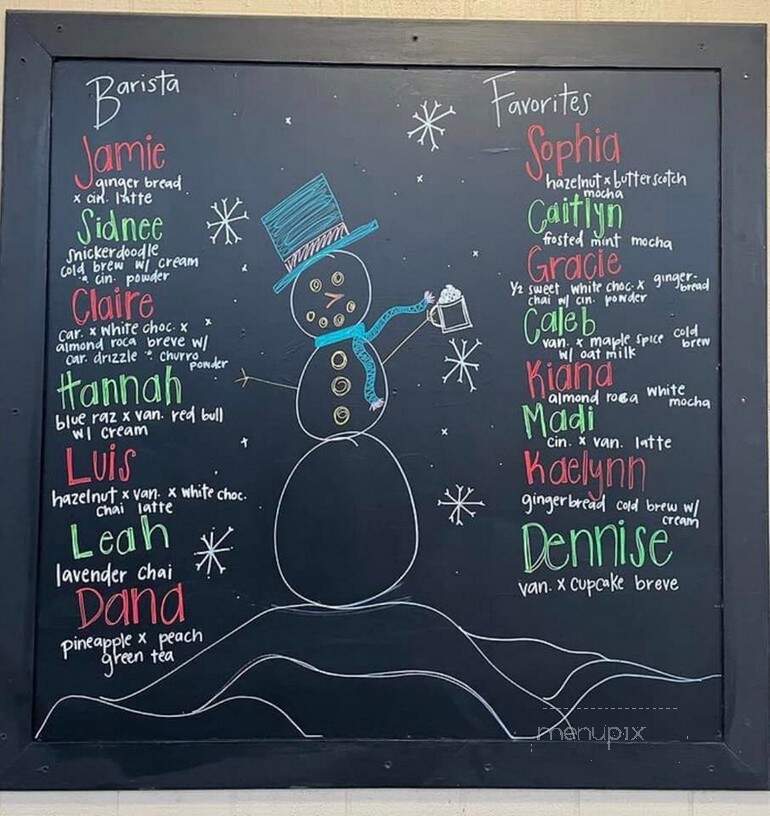 Barista
Jamie
ginger bread
x cin. latte
Sidnee
snickerdoodle
cold brew w/ cream
* cin. powder
Claire
car. x white choc. x
almond roca breve w/
car. drizzle * churro
powder
Hannah
blue raz x van. red bull
w/ cream
Luis
hazelnut x van. x white choc.
chai latte
Leah
lavender chai
Dana
pineapple x peach
green tea
Favorites
Sophia
hazelnut x butterscotch
mocha
Caitlyn
frosted mint mocha
Gracie
1/2 sweet white choc. x ginger-
bread
chai w/ cin. powder
Caleb
van. x maple spice cold
brew
w/ oat milk
Kiana
almond roca white
mocha
Madi
cin. x van. latte
Kaelynn
gingerbread cold brew w/
cream
Dennise
van. x cupcake breve
menupix